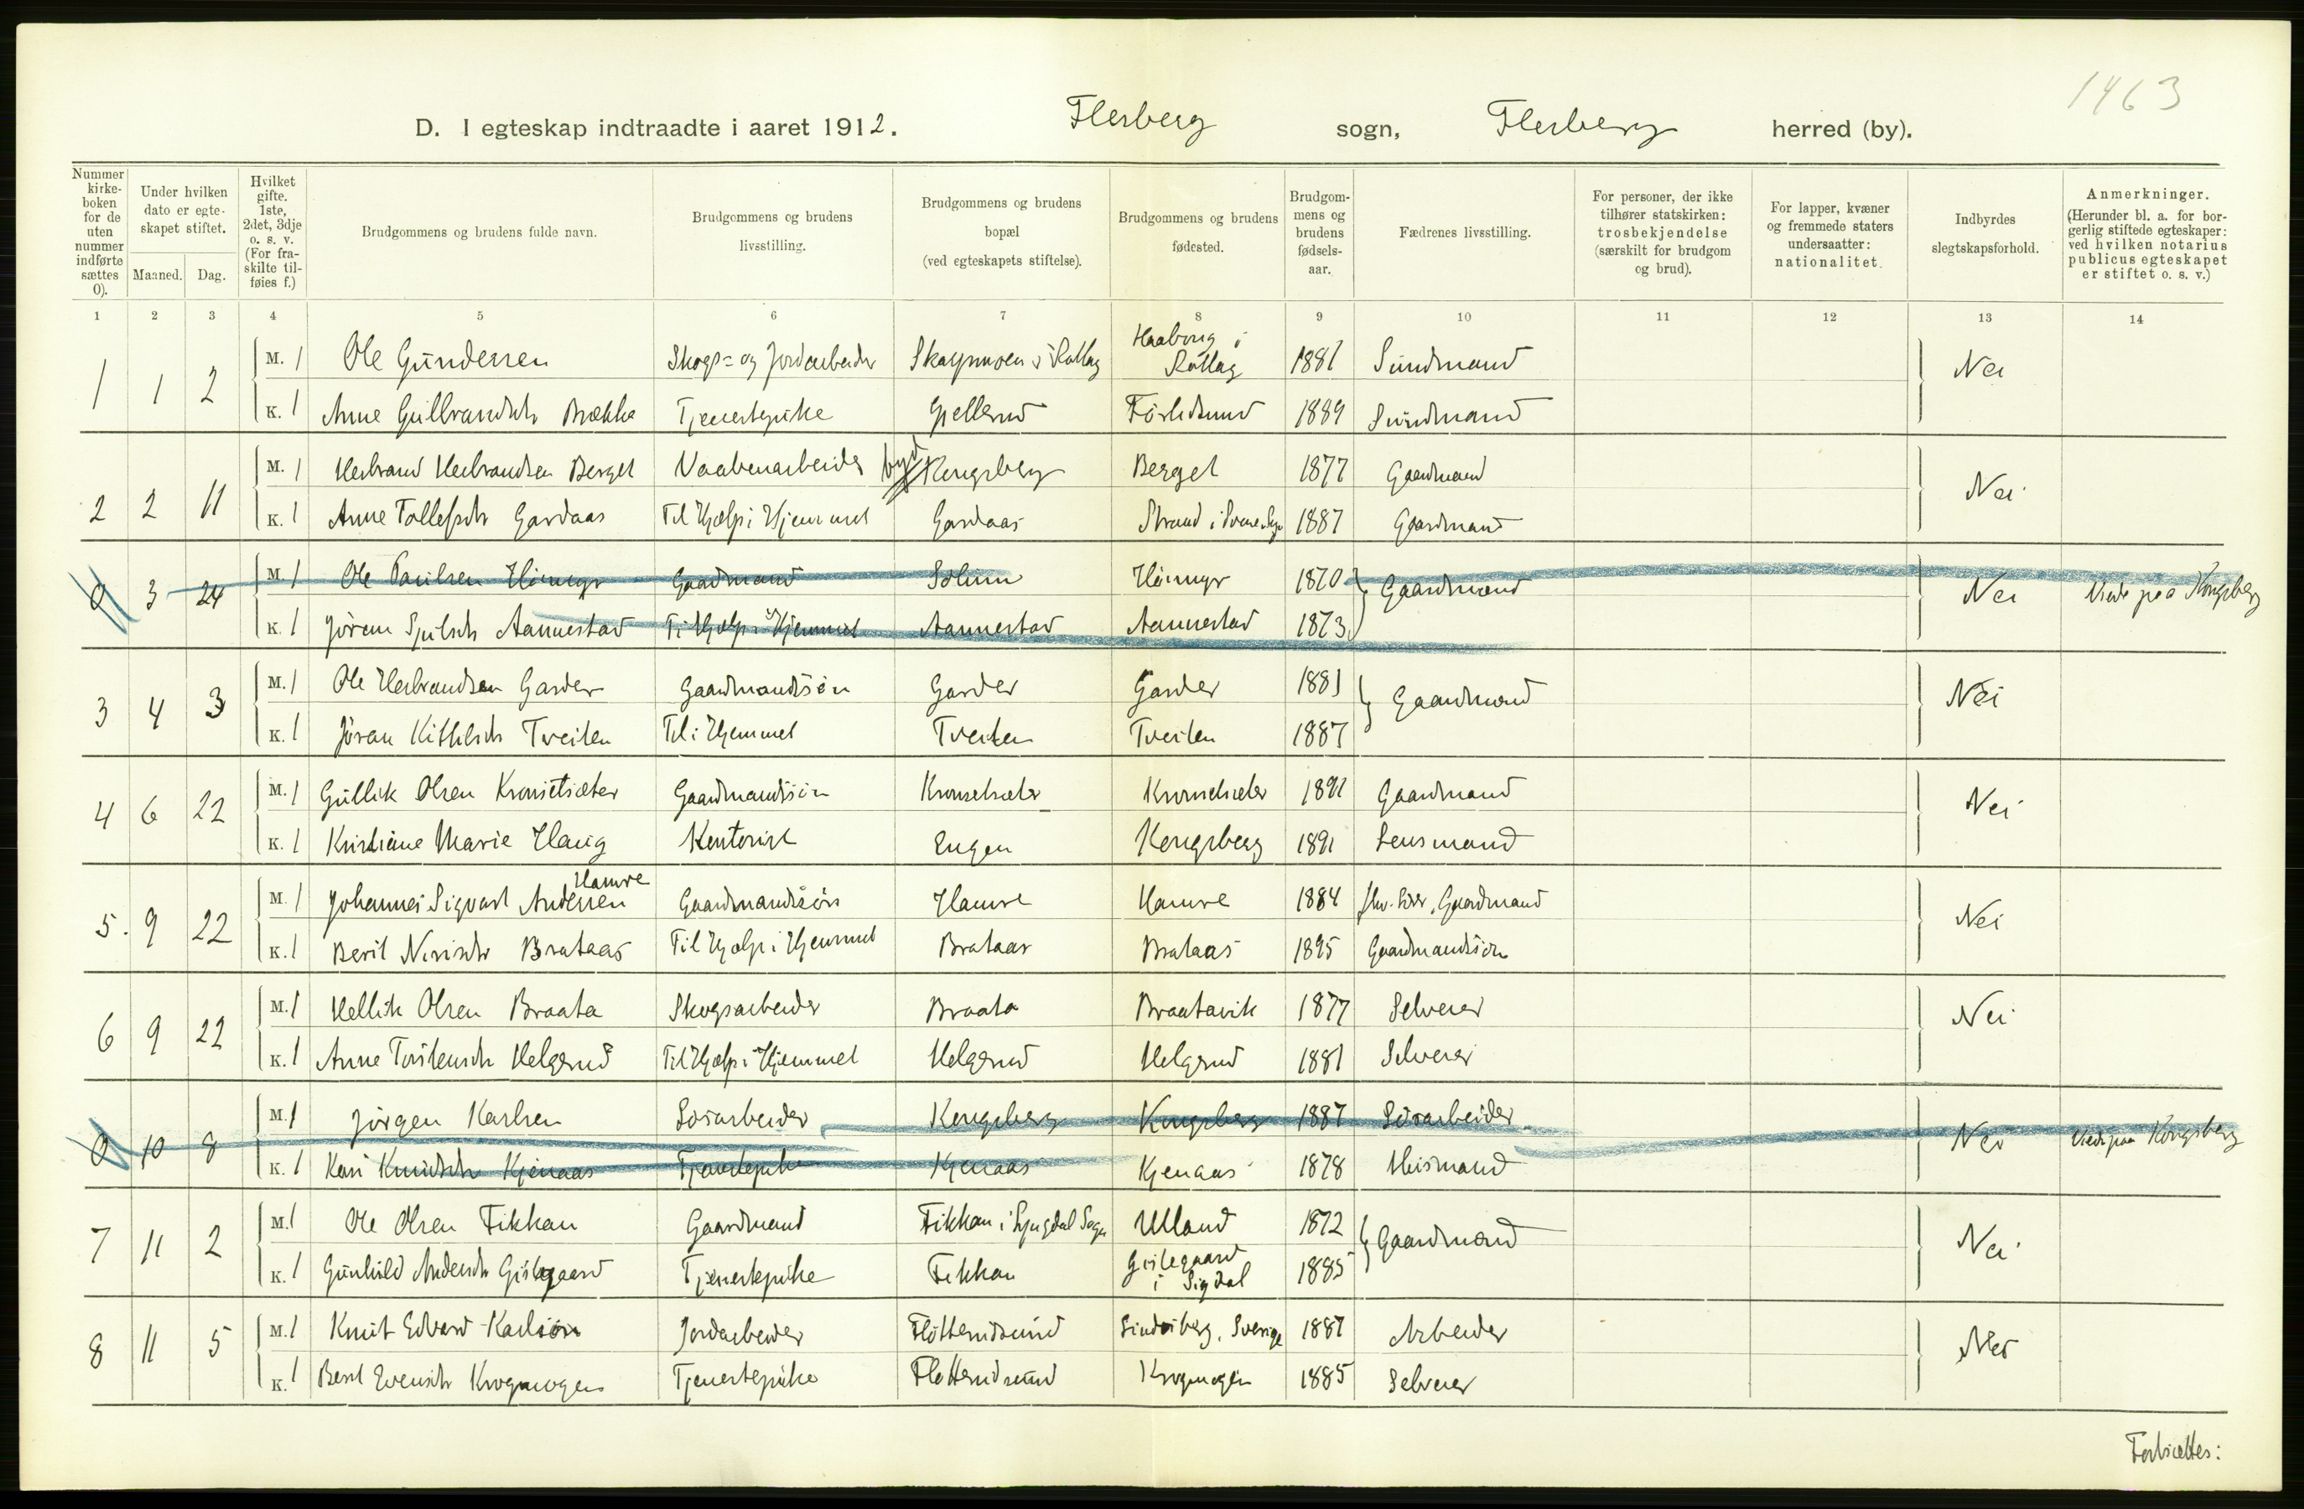 1463
D. I egteskap indtraadte i aaret 1912. Flesberg sogn, Flesberg herred (by).
Nummer kirkeboken for de uten nummer indførte sættes 0). | Under hvilken dato er egteskapet stiftet. Maaned. Dag. | Hvilket gifte. 1ste, 2det, 3dje o. s. v. (For fraskilte tilføies f.) | Brudgommens og brudens fulde navn. | Brudgommens og brudens livsstilling. | Brudgommens og brudens bopæl (ved egteskapets stiftelse). | Brudgommens og brudens fødested. | Brudgommens og brudens fødselsaar. | Fædrenes livsstilling. | For personer, der ikke tilhører statskirken: trosbekjendelse (særskilt for brudgom og brud). | For lapper, kvæner og fremmede staters undersaatter: nationalitet. | Indbyrdes slegtskapsforhold. | Anmerkninger. (Herunder bl. a. for borgerlig stiftede egteskaper: ved hvilken notarius publicus egteskapet er stiftet o. s. v.)
1 2 3 4 5 6 7 8 9 10 11 12 13 14
1 1 2 M. 1 Ole Gundersen Skogs- og Jordarbeider Skarpmoen i Rollag Haaberg i Rollag 1881 Sundmand Nei
K. 1 Anne Gulbrandsdr Brække Tjenestepike Gjellerud 1889 Sundmand
2 2 11 M. 1 Herbrand Herbrandsen Berget Vaabenarbeider by Kongsberg Berget 1877 Gaardmand Nei
K. 1 Anne Tollefsdr Gardaas Til Hjælp i Hjemmet Gardaas Strand i Svene Sogn 1887 Gaardmand
0 3 24 M. 1 Ole Paulsen Høimyr Gaardmand Solum Høimyr 1870 Gaardmand Nei Viede paa Kongsberg
K. 1 Jøran Aannestad Til Hjælp i Hjemmet Aannestad Aannestad 1873
3 4 3 M. 1 Ole Herbrandsen Garder Gaardmandssøn Garder Garder 1881 Gaardmand Nei
K. 1 Jøran Kittilsdr Tveiten Til i Hjemmet Tveiten Tveiten 1887
4 6 22 M. 1 Gullik Olsen Kronsetsæter Gaardmandssøn Kronsetsæter Kronsetsæter 1891 Gaardmand Nei
K. 1 Kristiane Marie Haug Kontorist Engen Kongsberg 1891 Lensmand
5. 9 22 M. 1 Johannes Sigvart Andersen Hamre Gaardmandssøn Hamre Hamre 1884 Gaardmand Nei
K. 1 Berit Nirisdr Brataas Til Hjælp i Hjemmet Brataas Brataas 1895 Gaardmandssøn
6 9 22 M. 1 Hellik Olsen Braata Skogsarbeider Braata Braatavik 1877 Selveier Nei
K. 1 Anne Torstensdr Helgerud Til Hjælp i Hjemmet Helgerud Helgerud 1881 Selveier
0 10 8 M. 1 Jørgen Karlsen Kongsberg Kongsberg 1887 Nei Viede paa Kongsberg
K. 1 Kari Knudsdr Kjenaas Tjenestepike Kjenaas Kjenaas 1878 Husmand
7 11 2 M. 1 Ole Olsen Fikkan Gaardmand Fikkan i Lyngdal Sogn Ulland 1872 Gaardmand Nei
K. 1 Gunhild Andersdr Gislegaard Tjenestepike Fikkan Gislegaard i Sigdal 1885
8 11 5 M. 1 Knut Edvard Karlson Jordarbeider Flottendsund Sverige 1887 Arbeider Nei
K. 1 Berit Evensdr Krogmogen Tjenestepike Flottendsund Krogmogen 1885 Selveier
Fortsættes: